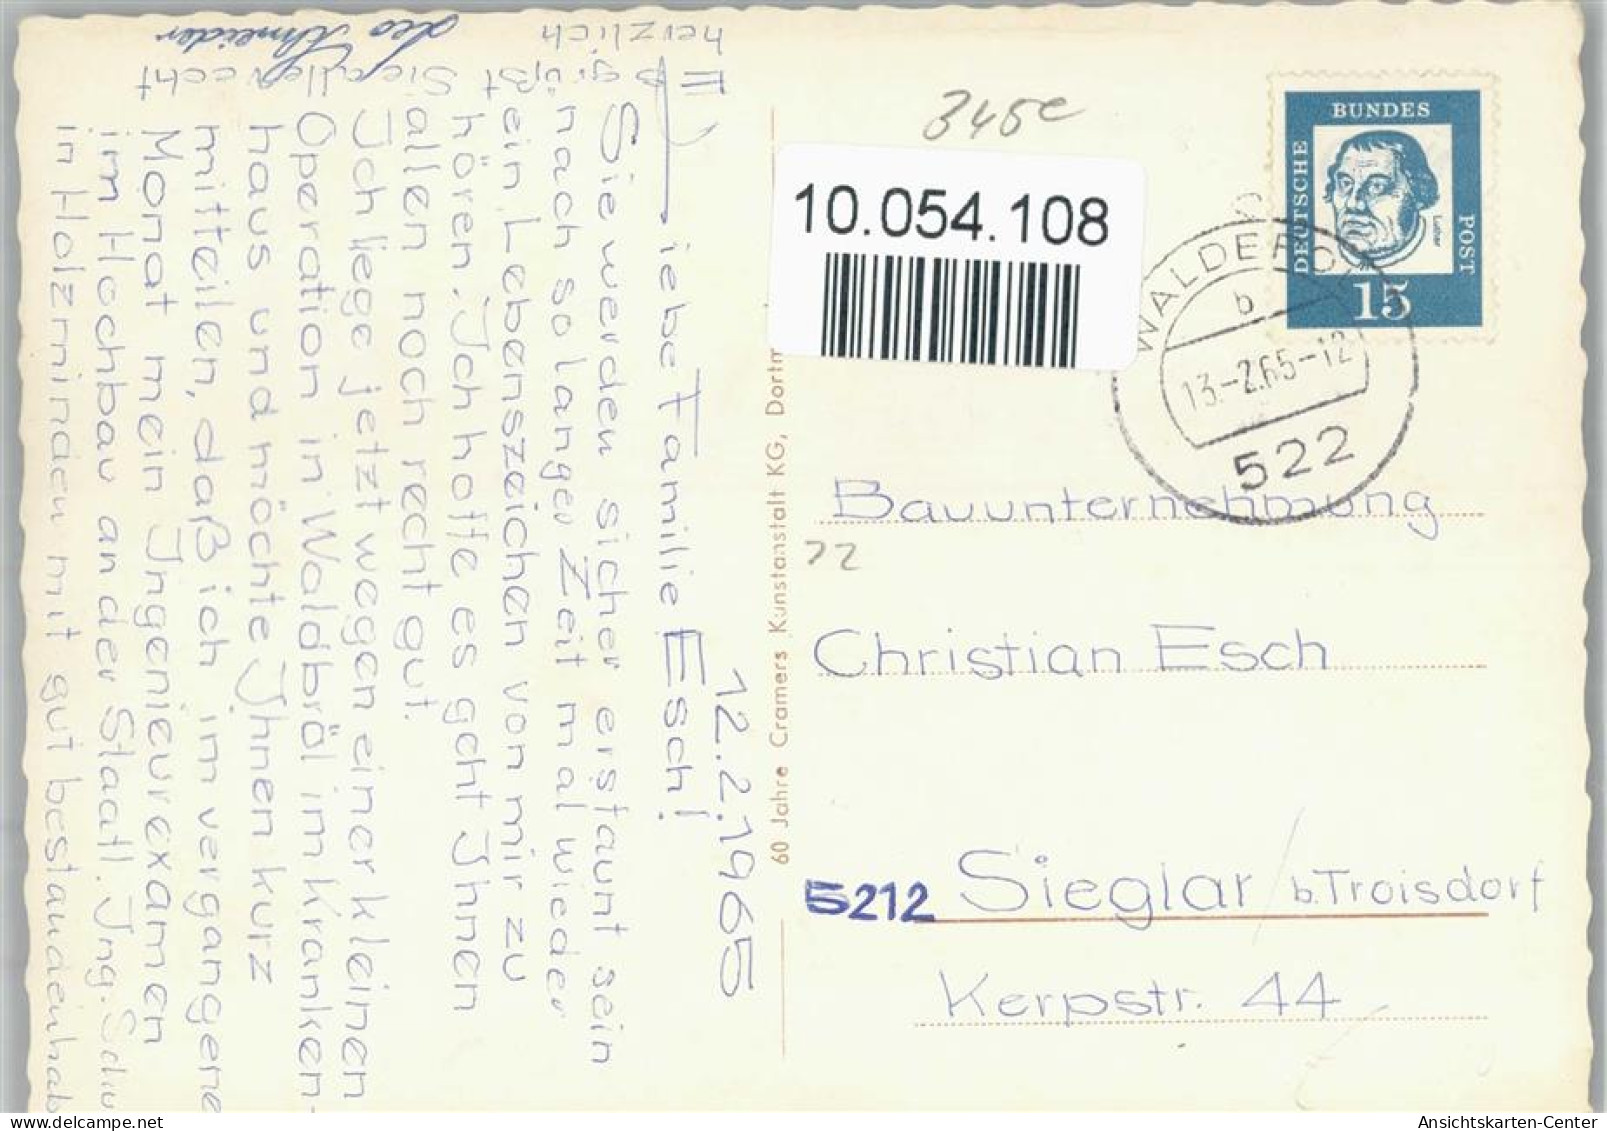 12.2.1965
Liebe Familie Esch!
Sie werden sicher erstaunt sein
nach so langer Zeit mal wieder
ein Lebenszeichen von mir zu
hören. Ich hoffe es geht Ihnen
allen noch recht gut.
Ich liege jetzt wegen einer kleinen
Operation in Waldbröl im Kranken-
haus und möchte Ihnen kurz
mitteilen, daß ich im vergangene
Monat mein Ingenieurexamen
im Hochbau an der Staatl. Ing. Schu
in Holzminden mit gut bestanden hab
grüßt Sie alle recht
herzlich
60 Jahre Cramers Kunstanstalt KG, Dortm
345e
10.054.108
DEUTSCHE BUNDES POST
Luther
15
b
13.-2.65-12
522
Bauunternehmung
22
Christian Esch
5212 Sieglar b. Troisdorf
Kerpstr. 44
Ansichtskarten-Center